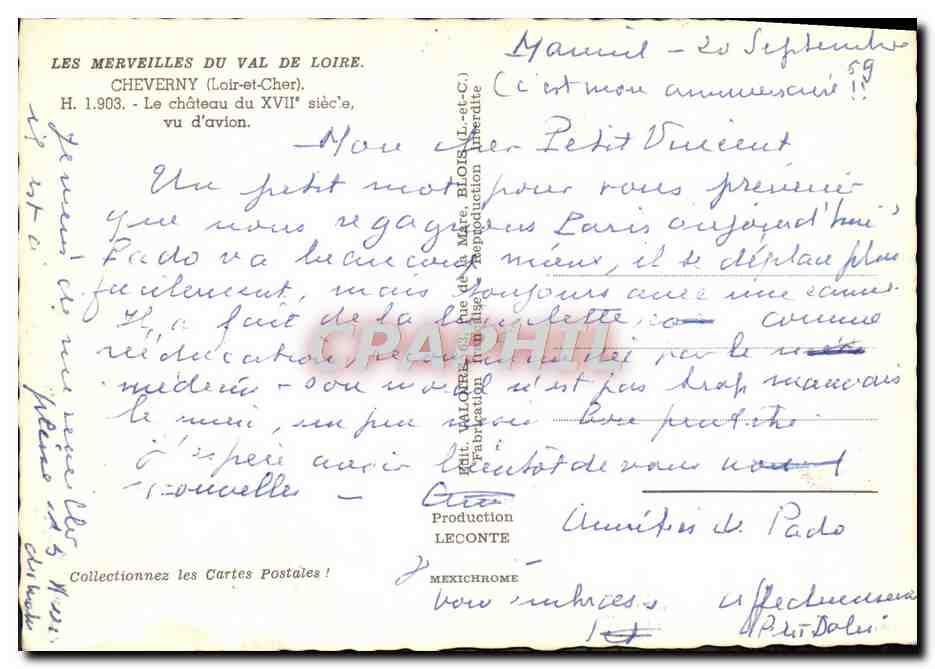 LES MERVEILLES DU VAL DE LOIRE.
CHEVERNY (Loir-et-Cher).
H. 1.903. - Le château du XVIIe siècle,
vu d'avion.
20 Septembre
59
(c'est mon anniversaire !!
Mon cher Petit Vincent
Un petit mot pour vous prévenir
que nous regagnons Paris aujourd'hui
Pado va beaucoup mieux, il se déplace plus
facilement, mais toujours avec une canne
Il a fait de la bicyclette, comme
rééducation, recommandée par le
médecin - son moral n'est pas trop mauvais
le mien, un peu moins bon peut-être
J'espère avoir bientôt de vous
nouvelles -
Amitiés de Pado
vous embrasse affectueusement
Je viens de
il est à
pleine
Edit. VALOIRE, 63, rue de la Mare, BLOIS (L.-et-C.)
"Fabrication française" - Reproduction interdite
Production
LECONTE
MEXICHROME
Collectionnez les Cartes Postales !
CPAPHIL